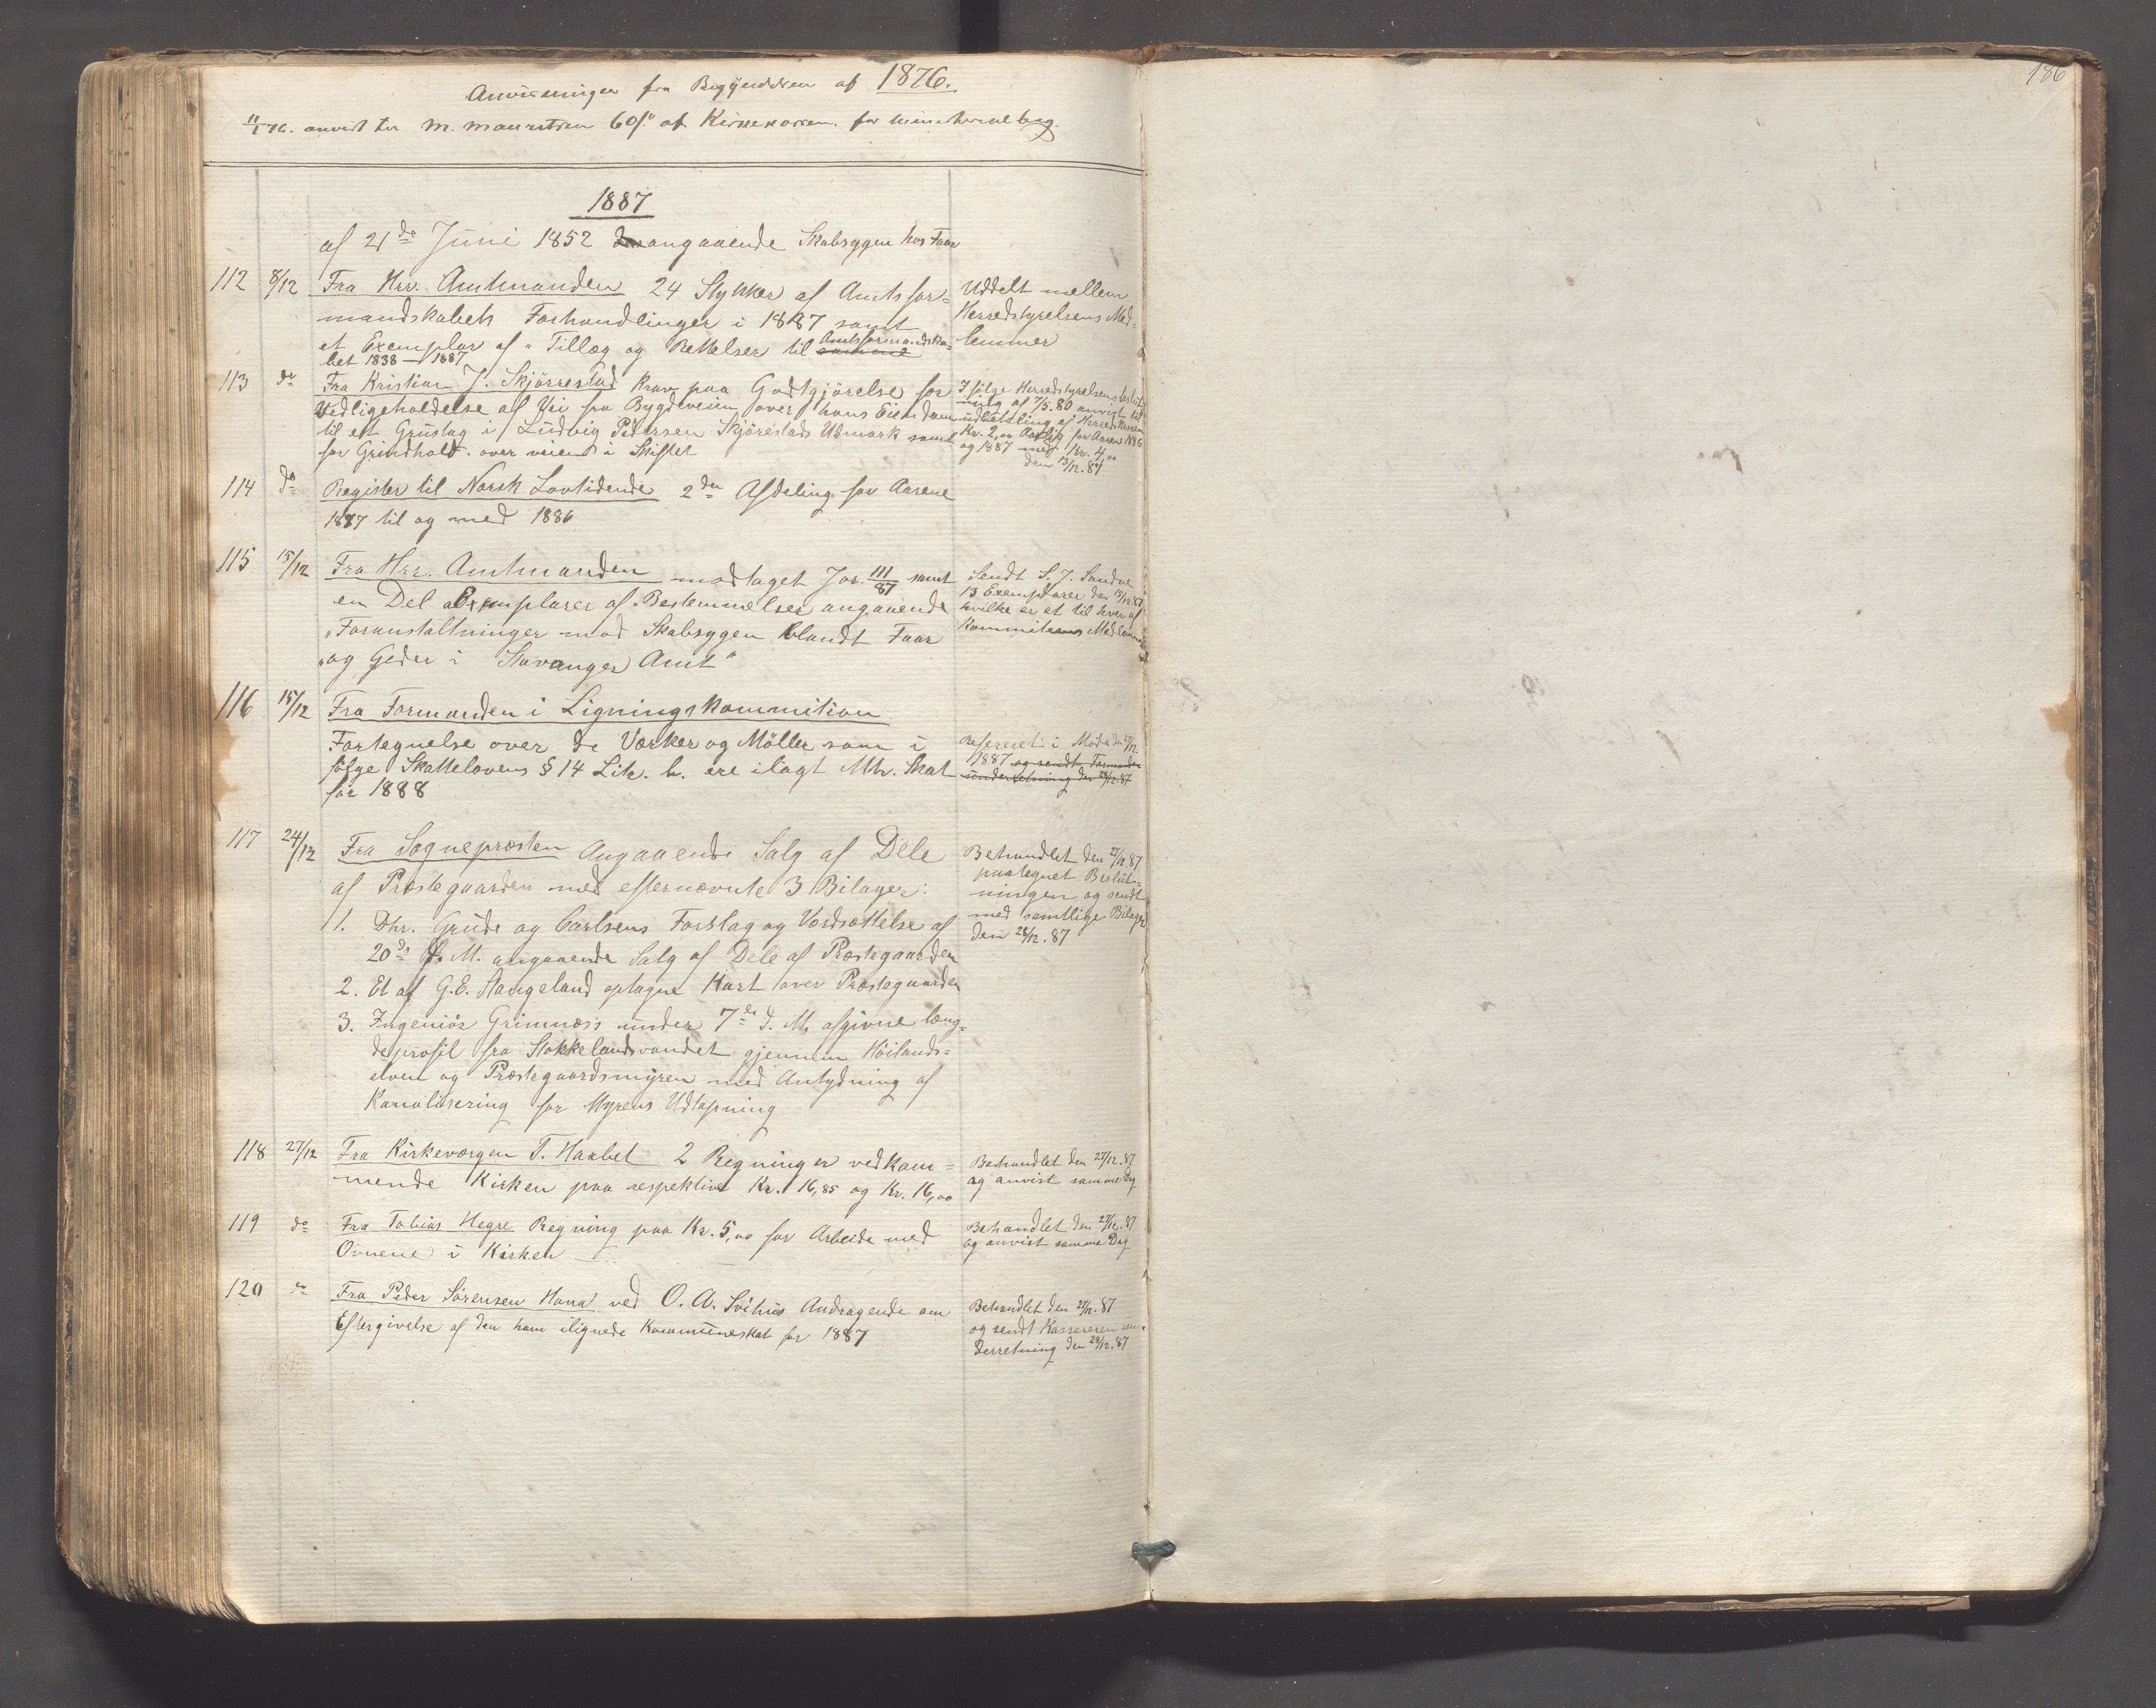 186
Anvisninger fra Begyndelsen af 1876.
11/1 76. anvist til M. Mauritsen 60 s. af Kirkekassen. for
1887
af 21de Juni 1852 angaaende Skabsygen hos Faar
112 8/12 Fra Hrr. Amtmanden 24 Stykker af Amtsfor=
mandskabets Forhandlinger i 1887 samt
et Exemplar af "Tillæg og Rettelser til samme Amtsformandska=
bet 1838–1887
Uddelt mellem
Herredstyrelsens Med=
lemmer
113 do Fra Kristian J. Skjörrestad Krav paa Godtgjörelse for
Vedligeholdelse af Vei fra Bygdeveien over hans Eiendom
til et Grustag i Ludvig Pedersen Skjörestads Udmark samt
for Grindhold. over veien i Skiftet
I følge Herredstyrelsens Beslut=
ning af 7/5.80 anvist til
udbetaling af Herredskassen
Kr. 2,00 Aarlig for Aarene 1886
og 1887 med Kr. 4,00
den 13/12.87
114 do Register til Norsk Lovtidende 2den Afdeling for Aarene
1877 til og med 1886
115 15/12 Fra Hrr. Amtmanden modtaget Jor. 111/87 samt
en Del Exemplarer af "Bestemmelser angaaende
"Foranstaltninger mod Skabsygen blandt Faar
"og Geder i Stavanger Amt"
Sendt S. J. Sandve
13 Exemplarer den 19/12.87
hvilke er et til hver af
Kommiteens Medlemmer
116 15/12 Fra Formanden i Ligningskommition
Fortegnelse over de Værker og Möller som i
fölge Skattelovens § 14 Litr. b. ere ilagt Mtr. Skat
for 1888
Refereret i Möde den 27/12.
1887 og sendt Formanden
underretning den 28/12.87
117 24/12 Fra Sognepresten Angaaende Salg af Dele
af Præstegaarden med efternævnte 3 Bilager:
1. Dhr. Grude og Carlsens Forslag og Værdsættelse af
20de f. M. angaaende Salg af Dele af Præstegaarden
2. Et af G.E. Haugeland optagne Kart over Præstegaarden
3. Ingeniör Grimnæss under 7de d. M. afgivne læng=
deprofil fra Stokkelandsvandet gjennem Höilands=
elven og Præstegaardsmyren med Antydning af
Kanalisering for Myrens Udtapning
Behandlet den 27/12.87
paategnet Beslut=
ningen og sendt
med samtlige Bilager
den 28/12.87
118 27/12 Fra Kirkeværgen T. Haabet 2 Regninger vedkom=
mende Kirken paa respektive Kr. 16,85 og Kr. 16,00
Behandlet den 27/12.87
og anvist samme Dag
119 do Fra Tobias Hegre Regning paa Kr. 5,00 for Arbeide med
Ovnene i Kirken
Behandlet den 27/12.87
og anvist samme Dag
120 do Fra Peder Sörensen Hana ved O. A. Svihus Andragende om
Eftergivelse af den ham ilignede Kommuneskat for 1887
Behandlet den 27/12.87
og sendt Kassereren un=
derretning den 28/12.87